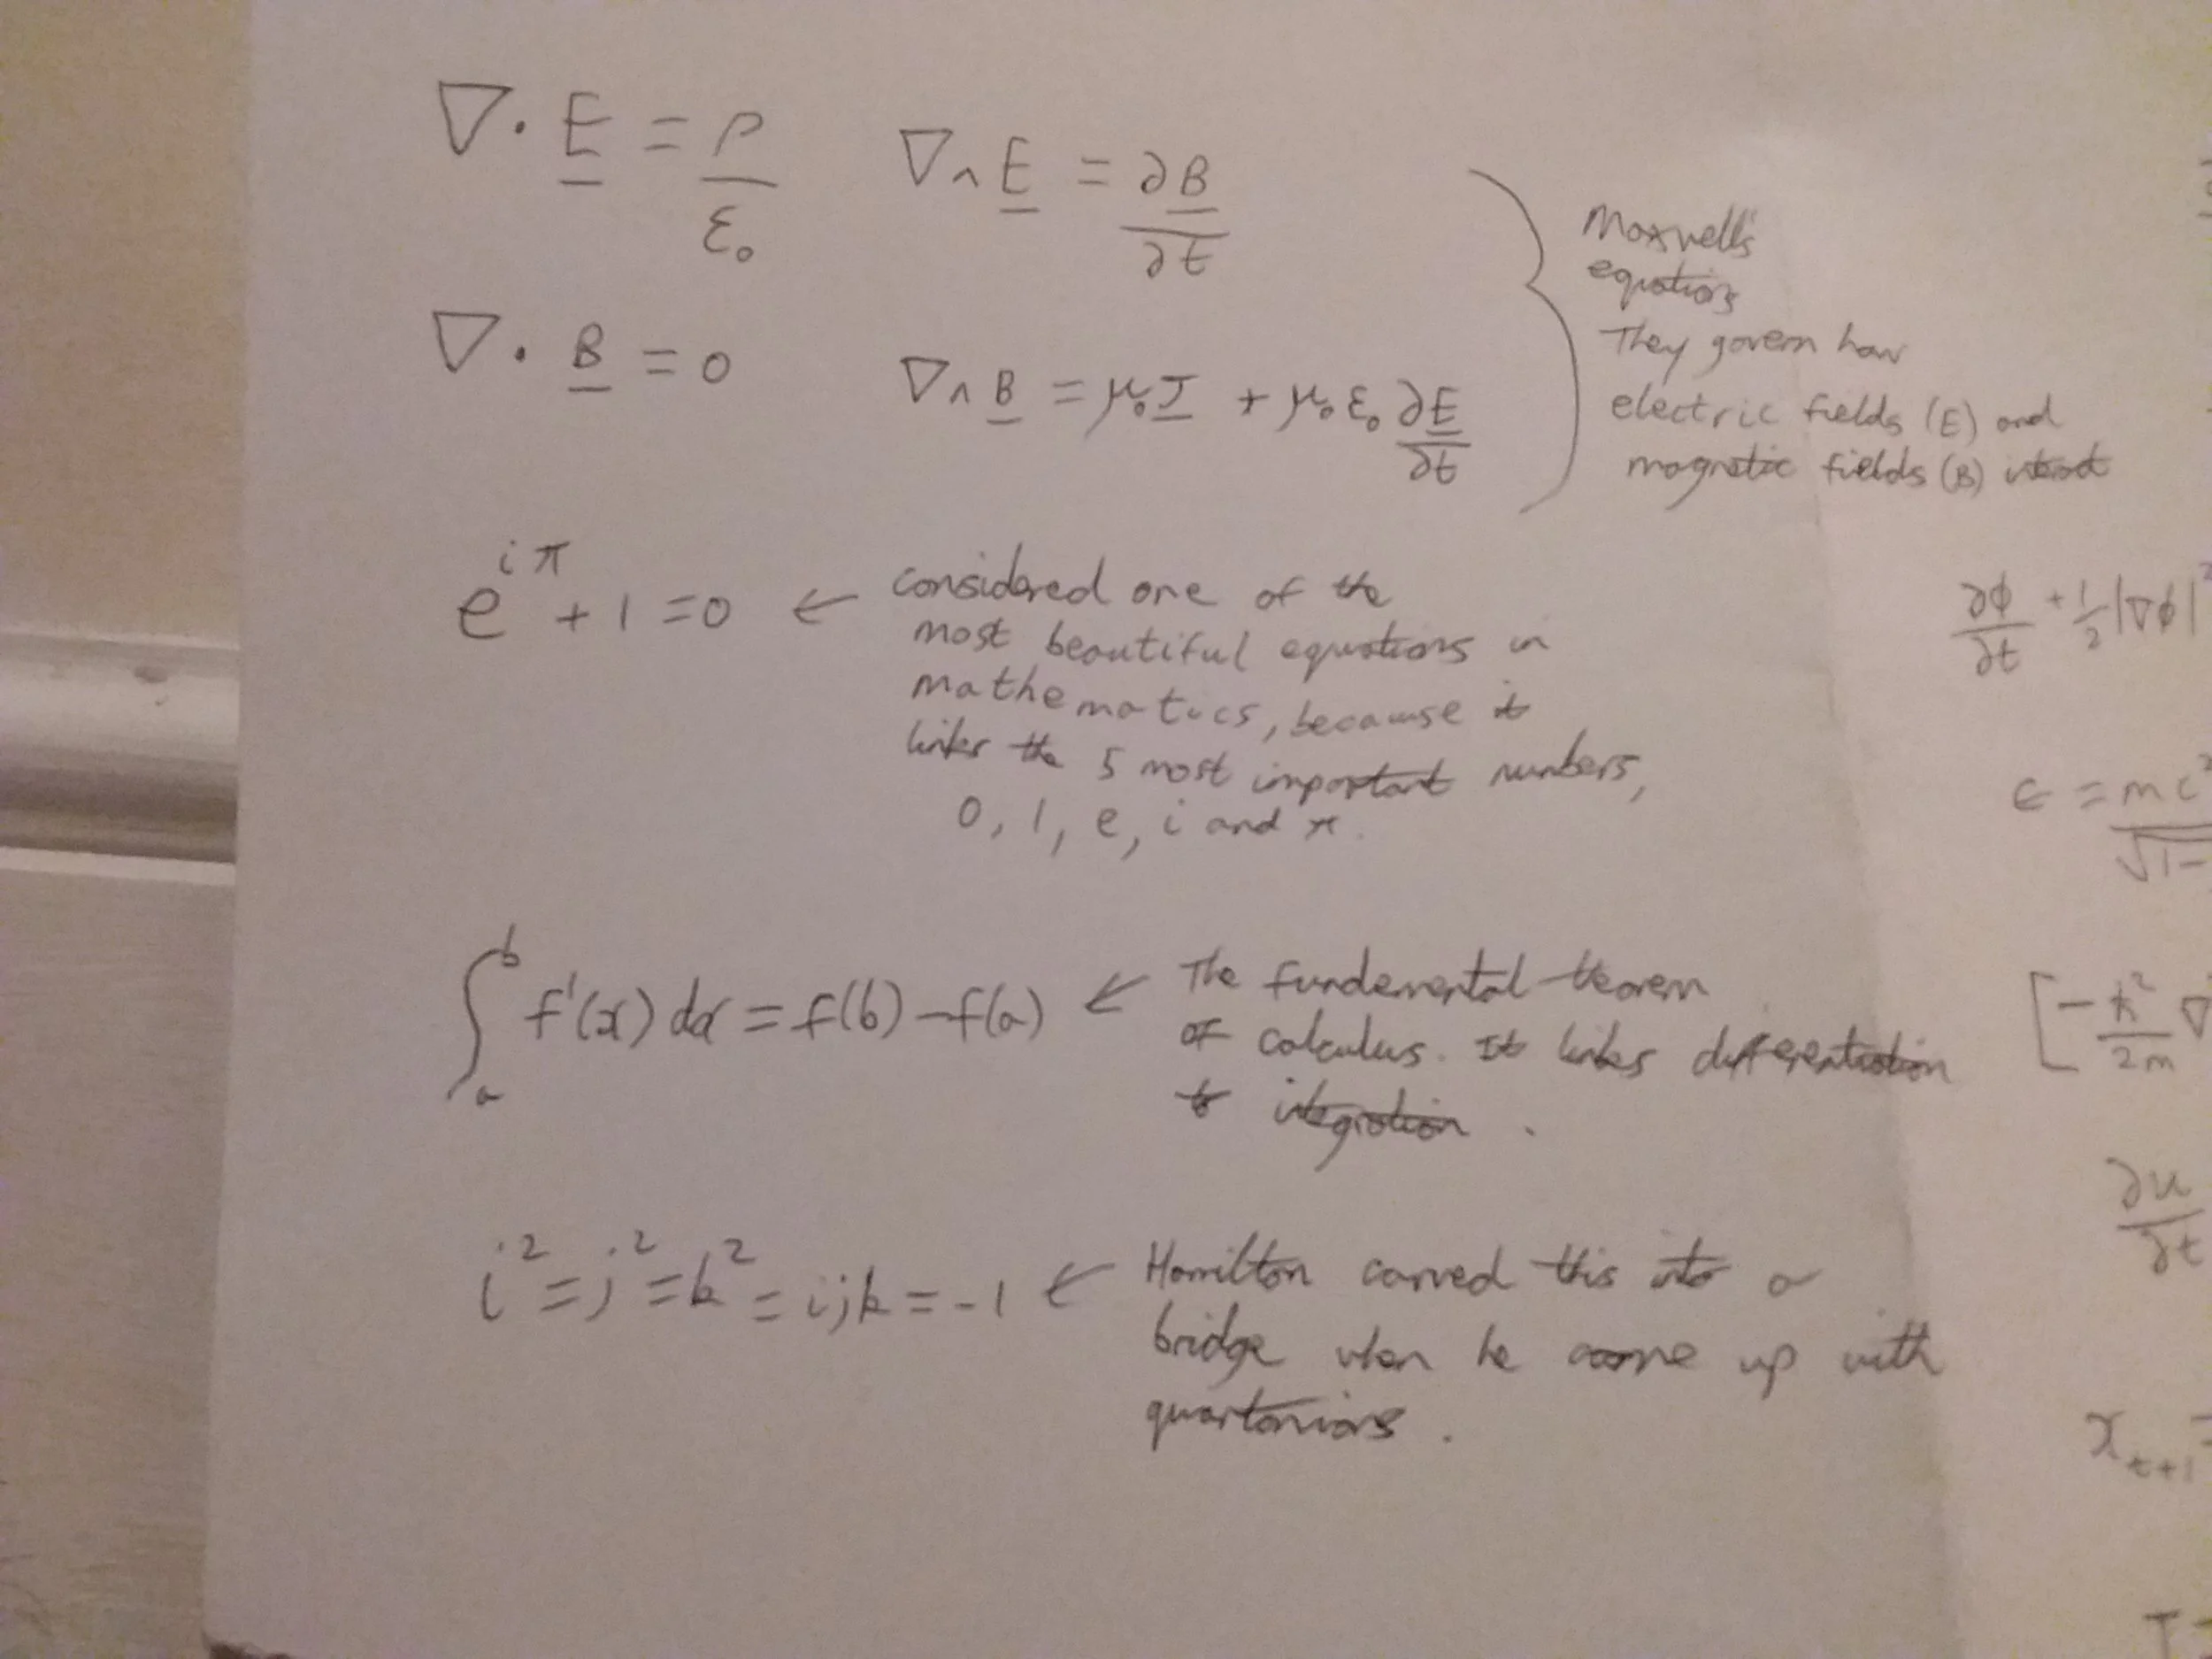 ∇·E = ρ/ε₀    ∇∧E = ∂B/∂t
∇·B = 0    ∇∧B = μ₀J + μ₀ε₀ ∂E/∂t
Maxwell's
equations
They govern how
electric fields (E) and
magnetic fields (B) interact
e^{iπ} + 1 = 0 ← considered one of the
most beautiful equations in
mathematics, because it
links the 5 most important numbers,
0, 1, e, i and π.
∫_a^b f'(x) dx = f(b) - f(a) ← The fundemental theorem
of calculus. It links differentiation
to integration.
i² = j² = k² = ijk = -1 ← Hamilton carved this into a
bridge when he came up with
quartonians.
∂φ/∂t + 1/2 |∇φ|²
E = mc²/√1-
[-ħ²/2m ∇
∂u/∂t
x_{t+1} =